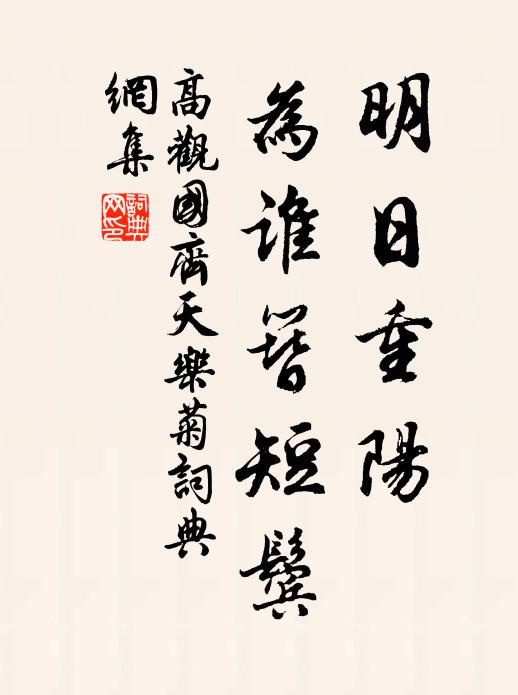 明日重陽
為誰簪短鬢
高觀國齊天樂菊詞典
網集
詞典
网印